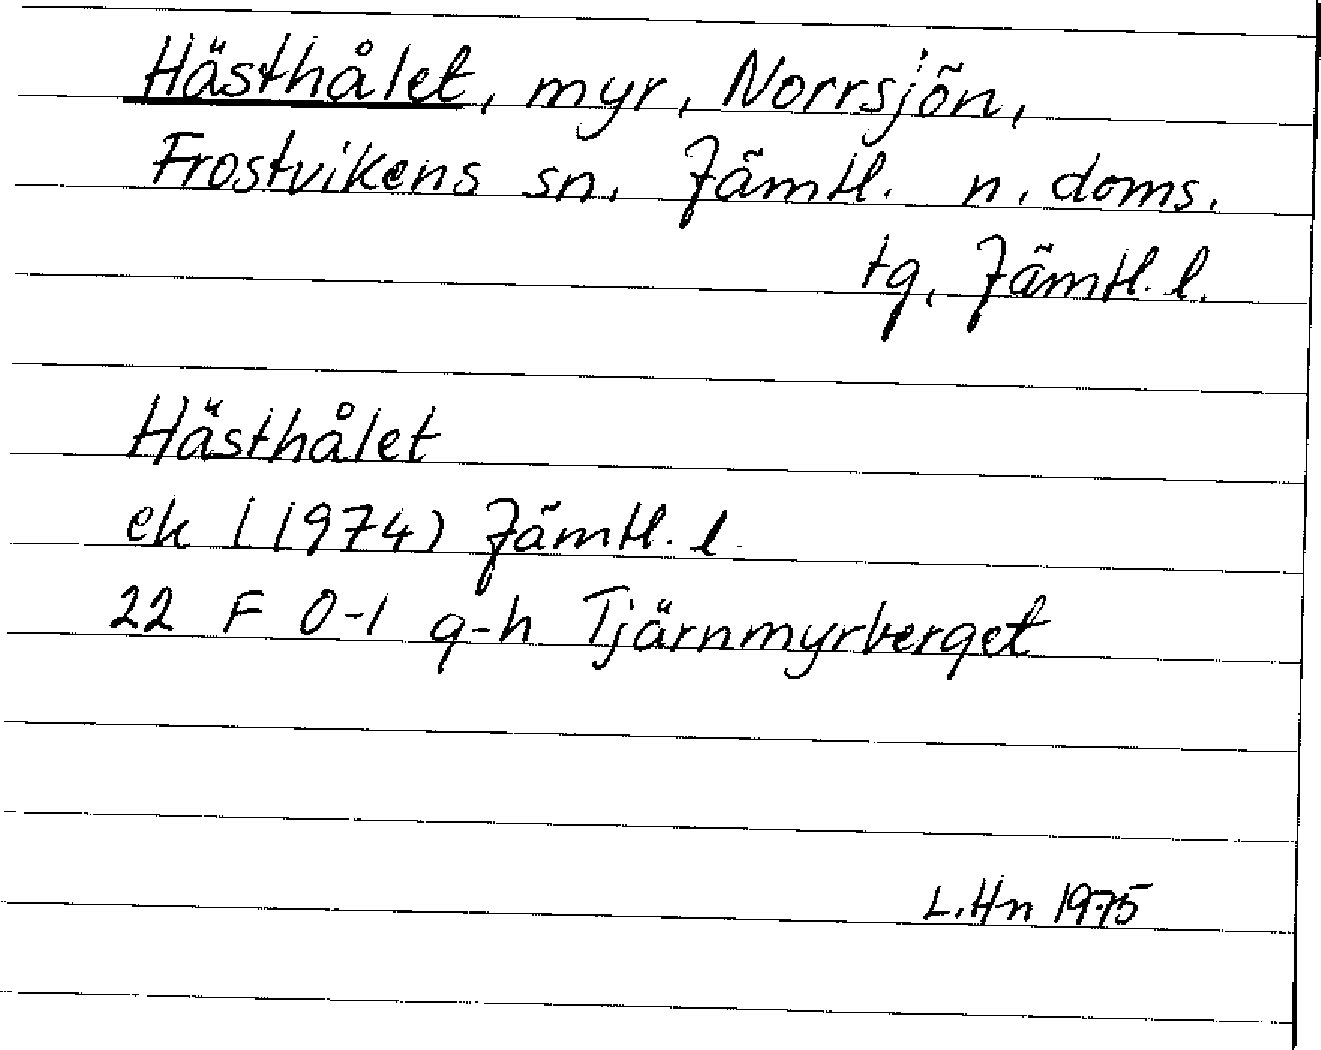 Hästhålet, myr, Norrsjön,
Frostvikens sn. Jämtl. n. doms.
tg, Jämtl. l.
Hästhålet
ek (1974) Jämtl. l.
22 F 0-1 g-h Tjärnmyrberget
L.Hn 1975